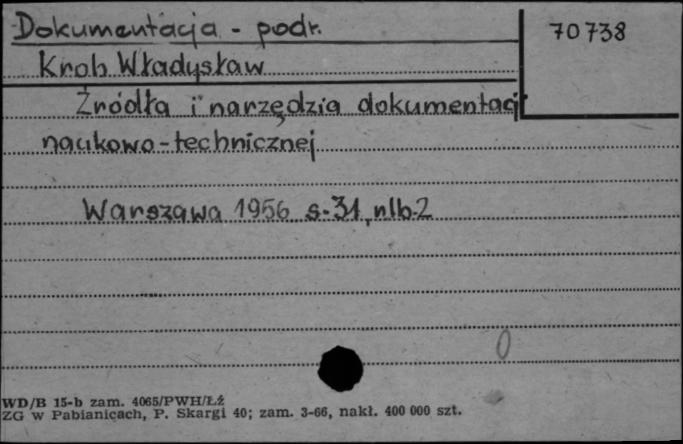 Dokumentacja - podr.
70738
Krob Władysław
Źródła i narzędzia dokumentacji
naukowo-technicznej
Warszawa 1956 s. 31, nlb. 2
0
WD/B 15-b zam. 4065/PWH/Łź
ZG w Pabianicach, P. Skargi 40; zam. 3-66, nakł. 400 000 szt.